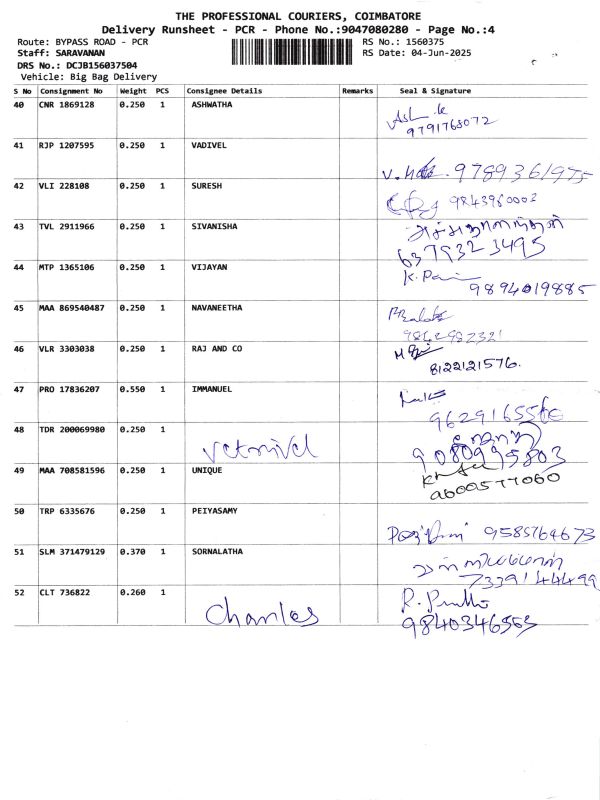 THE PROFESSIONAL COURIERS, COIMBATORE
Delivery Runsheet - PCR - Phone No.:9047080280 - Page No.:4
Route: BYPASS ROAD - PCR
RS No.: 1560375
Staff: SARAVANAN
RS Date: 04-Jun-2025
DRS No.: DCJB156037504
Vehicle: Big Bag Delivery
S No Consignment No Weight PCS Consignee Details Remarks Seal & Signature
40 CNR 1869128 0.250 1 ASHWATHA
9791768072
41 RJP 1207595 0.250 1 VADIVEL
9789361975
42 VLI 228108 0.250 1 SURESH
43 TVL 2911966 0.250 1 SIVANISHA
6379323495
44 MTP 1365106 0.250 1 VIJAYAN
9894019885
45 MAA 869540487 0.250 1 NAVANEETHA
9842982321
46 VLR 3303038 0.250 1 RAJ AND CO
8122121576.
47 PRO 17836207 0.550 1 IMMANUEL
48 TDR 200069980 0.250 1 Vetrivel
9080995803
49 MAA 708581596 0.250 1 UNIQUE
9600577060
50 TRP 6335676 0.250 1 PEIYASAMY
9585764673
51 SLM 371479129 0.370 1 SORNALATHA
7339144499
52 CLT 736822 0.260 1 Charles